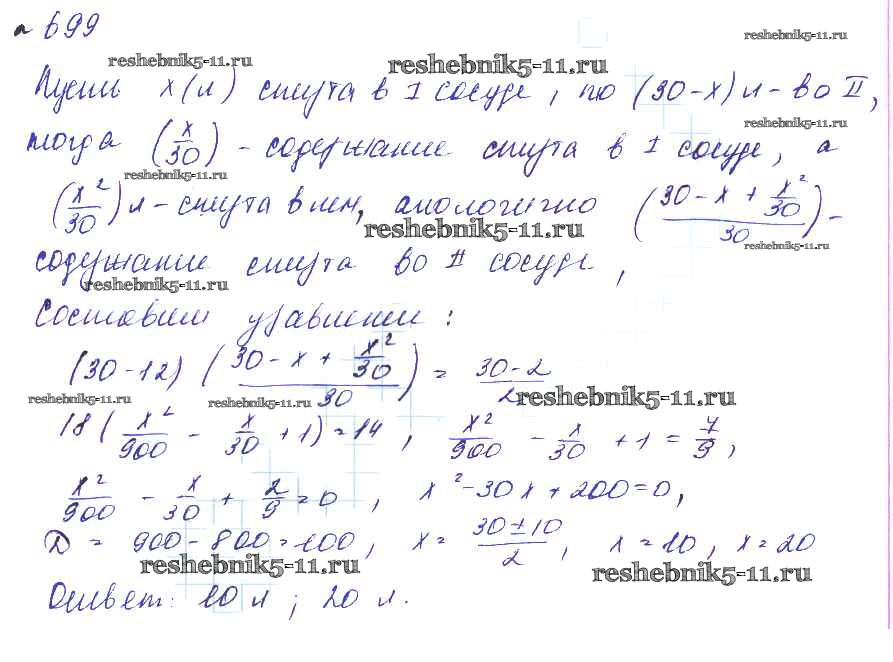 № 699
reshebnik5-11.ru reshebnik5-11.ru reshebnik5-11.ru
Пусть x (л) спирта в I сосуде, то (30-x) л - во II,
reshebnik5-11.ru
тогда (x/30) - содержание спирта в I сосуде, а
reshebnik5-11.ru
(x²/30) л - спирта в нем, аналогично ((30 - x + x²/30)/30) -
reshebnik5-11.ru reshebnik5-11.ru
содержание спирта во II сосуде,
reshebnik5-11.ru
Составим уравнение:
(30-12) ((30 - x + x²/30)/30) = (30-2)/2
reshebnik5-11.ru reshebnik5-11.ru reshebnik5-11.ru
18 (x²/900 - x/30 + 1) = 14, x²/900 - x/30 + 1 = 7/9,
x²/900 - x/30 + 2/9 = 0, x² - 30x + 200 = 0,
D = 900 - 800 = 100, x = (30 ± 10)/2, x = 10, x = 20
reshebnik5-11.ru reshebnik5-11.ru
Ответ: 10 л; 20 л.